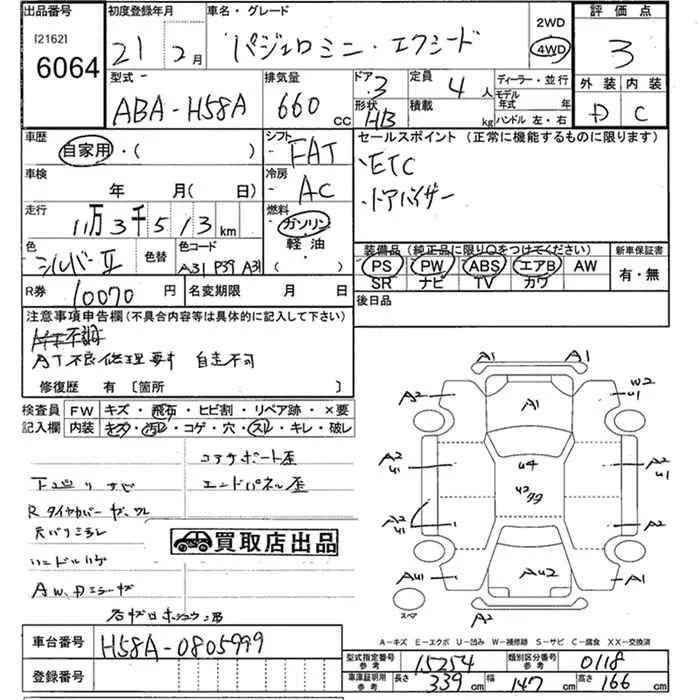 出品番号 初度登録年月 車名・グレード 2WD 評価点
[2162] 6064 21 2月 パジェロミニ・エクシード 4WD 3
型式 排気量 ドア 3 定員 4人 ディーラー・並行 外装 内装
ABA-H58A 660cc 形状 HB 積載 kg モデル年式 年 ハンドル 左・右 D C
車歴 自家用・( ) シフト FAT セールスポイント (正常に機能するものに限ります)
車検 年 月( 日) 冷房 AC ETC
ドアバイザー
走行 11万3千513km 燃料 ガソリン 軽油・( )
色 シルバーII 色替 色コード A31 P39 A31 装備品(純正品に限り○をつけてください) 新車保証書
PS PW ABS エアB AW 有・無
SR ナビ TV カワ
R券 10070円 名変期限 月 日 後日品
注意事項申告欄(不具合内容等は具体的に記入して下さい)
AT不良修理要す 自走不可
修復歴 有〔箇所 〕
検査員 FW キズ・飛石・ヒビ割・リペア跡・×要
記入欄 内装 キズ・汚レ・コゲ・穴・スレ・キレ・破レ
コアサポート歪
エンドパネル歪
R タイヤカバー
天バリ
買取店出品
A1 A1
A2 A1 W2 U1
A2 U1 U4 A2 U1
U2
A2 U1 A2
AU1 AU2 A1
スペア A2
A-キズ E-エクボ U-凹み W-補修跡 S-サビ C-腐食 XX-交換済
車台番号 H58A-0805999
型式指定番号 参考 15254 類別区分番号 参考 0118
登録番号 車庫証明用 参考 長さ 339cm 幅 147cm 高さ 166cm